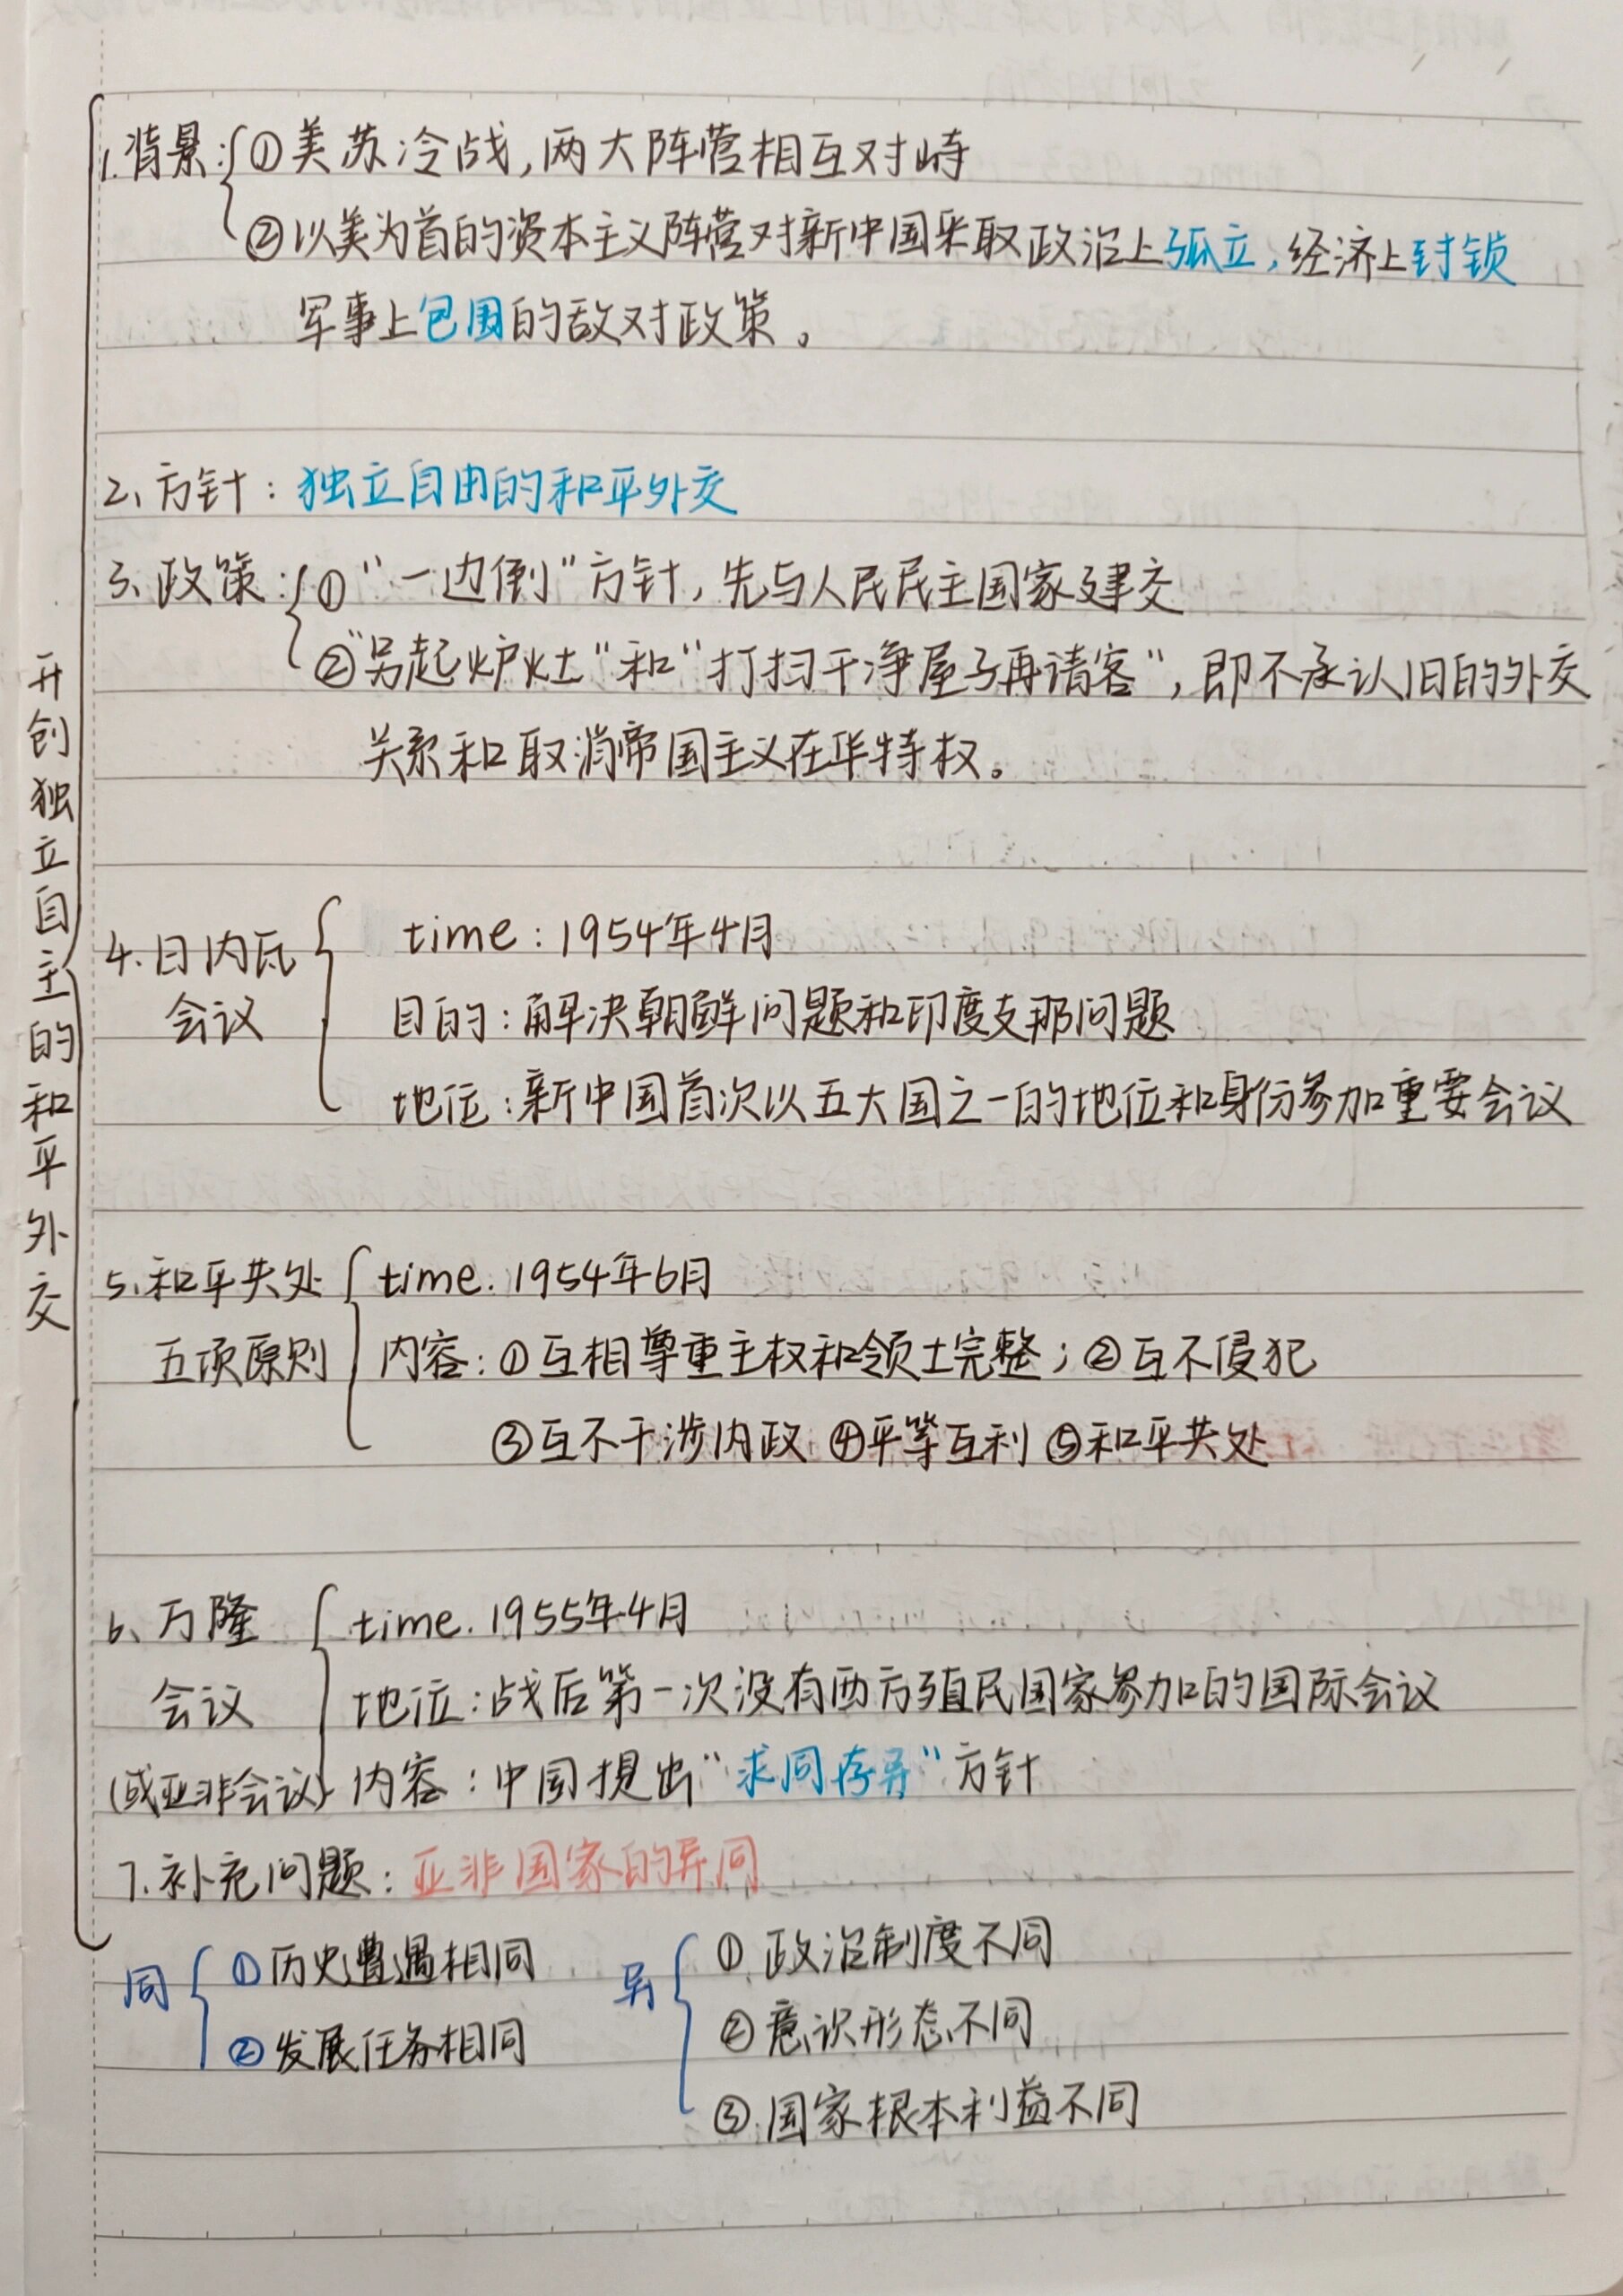 开创独立自主的和平外交
1.背景:①美苏冷战,两大阵营相互对峙
②以美为首的资本主义阵营对新中国采取政治上孤立,经济上封锁
军事上包围的敌对政策。
2、方针:独立自由的和平外交
3、政策:①"一边倒"方针,先与人民民主国家建交
②"另起炉灶"和"打扫干净屋子再请客",即不承认旧的外交
关系和取消帝国主义在华特权。
4.日内瓦会议
time:1954年4月
目的:解决朝鲜问题和印度支那问题
地位:新中国首次以五大国之一的地位和身份参加重要会议
5.和平共处五项原则
time.1954年6月
内容:①互相尊重主权和领土完整;②互不侵犯
③互不干涉内政 ④平等互利 ⑤和平共处
6、万隆会议
(或亚非会议)
time.1955年4月
地位:战后第一次没有西方殖民国家参加的国际会议
内容:中国提出"求同存异"方针
7.补充问题:亚非国家的异同
同
①历史遭遇相同
②发展任务相同
异
①政治制度不同
②意识形态不同
③.国家根本利益不同